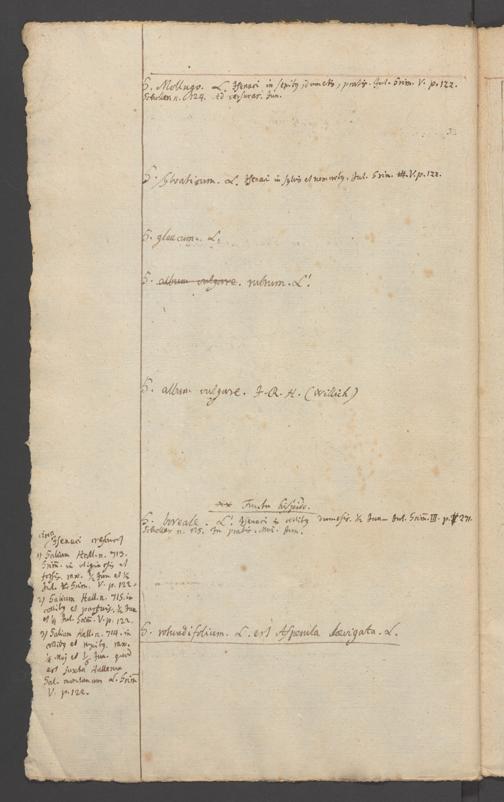 G. Mollugo. L. Isenaci in sepibus, dumetis, pratis. Jul. Grim. V. p. 122.
Scholler n. 124. ad Jun.
G. sylvaticum. L. Isenaci in sylvis et nemoribus. Jul. Grim. V. p. 122.
G. glaucum. L.
G. album vulgare. rubrum. L.
G. album vulgare. J. R. H. (Willich)
** Fructu hispido.
G. boreale. L. Isenaci collibus dumosis. ½ Jun. Jul. Grim. III. p. 271.
Scholler n. 125. In pratis. Jun.
G. rotundifolium. L. est Asperula laevigata. L.
Isenaci
1) Galium Hall. n. 713.
Grim. in et
½ Jun et ½
Jul. Grim. V. p. 122.
2) Galium Hall. n. 715. in
collibus et pascuis. ½ Jun
et ½ Jul. Grim. V. p. 122.
3) Galium Hall. n. 714. in
collibus et
Maj et ½ Jun. quod
est juxta Hallerum
Gal. montanum L. Grim
V. p. 122.